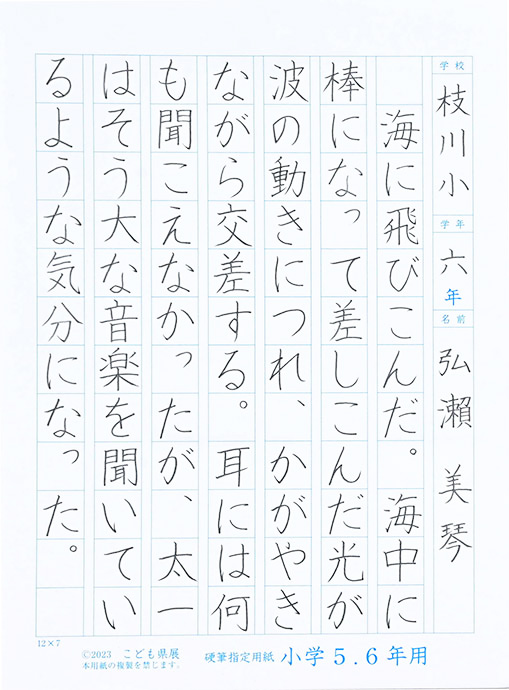 学校
枝川小
学年
六年
名前
弘瀬 美琴
海に飛びこんだ。海中に
棒になって差しこんだ光が
波の動きにつれ、かがやき
ながら交差する。耳には何
も聞こえなかったが、太一
はそう大な音楽を聞いてい
るような気分になった。
12×7
©2023 こども県展
本用紙の複製を禁じます。
硬筆指定用紙 小学5.6年用